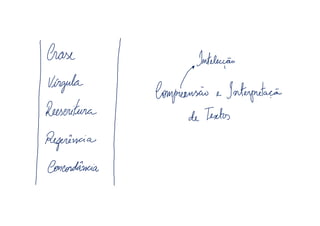 Crase
Vírgula
Reescritura
Referência
Concordância
Intelecção
Compreensão e Interpretação
de Textos